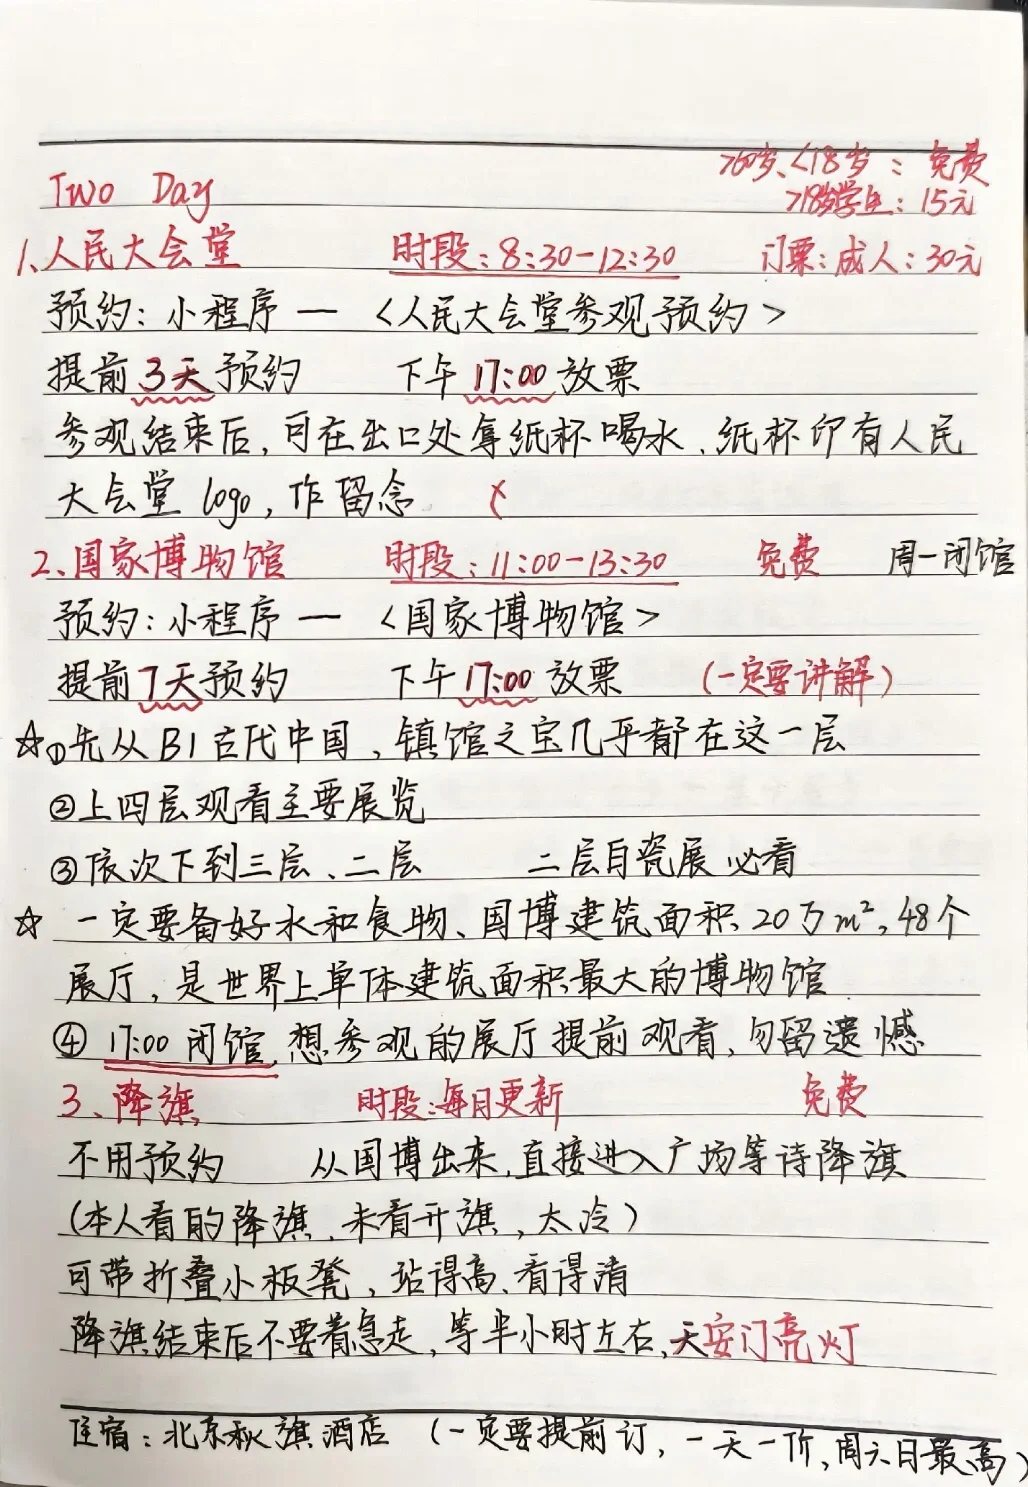 >60岁、<18岁：免费
Two Day
>18岁学生：15元
1、人民大会堂 时段：8:30-12:30 订票：成人：30元
预约：小程序 — <人民大会堂参观预约>
提前3天预约 下午17:00放票
参观结束后，可在出口处拿纸杯喝水、纸杯印有人民
大会堂 logo，作留念
2、国家博物馆 时段：11:00-13:30 免费 周一闭馆
预约：小程序 — <国家博物馆>
提前7天预约 下午17:00放票 （一定要讲解）
☆①先从B1古代中国，镇馆之宝几乎都在这一层
②上四层观看主要展览
③依次下到三层、二层 二层自瓷展必看
☆ 一定要备好水和食物、国博建筑面积20万m²，48个
展厅，是世界上单体建筑面积最大的博物馆
④ 17:00闭馆，想参观的展厅提前观看，勿留遗憾
3、降旗 时段：每日更新 免费
不用预约 从国博出来，直接进入广场等待降旗
（本人看的降旗，未看升旗，太冷）
可带折叠小板凳，站得高、看得清
降旗结束后不要着急走，等半小时左右，天安门亮灯
住宿：北京秋旗酒店 （一定要提前订，一天一价，周六日最高）